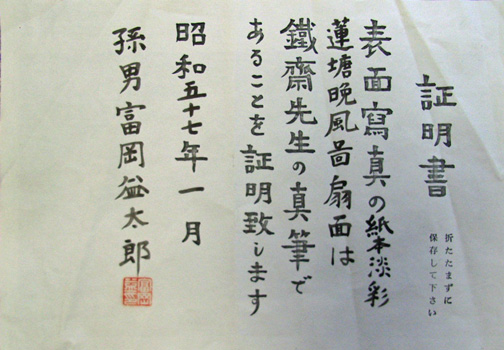 証明書
折たたまずに
保存して下さい
表面寫真の紙本淡彩
蓮塘晩風啚扇面は
鐵齋先生の真筆で
あることを証明致します
昭和五十七年一月
孫男富岡益太郎